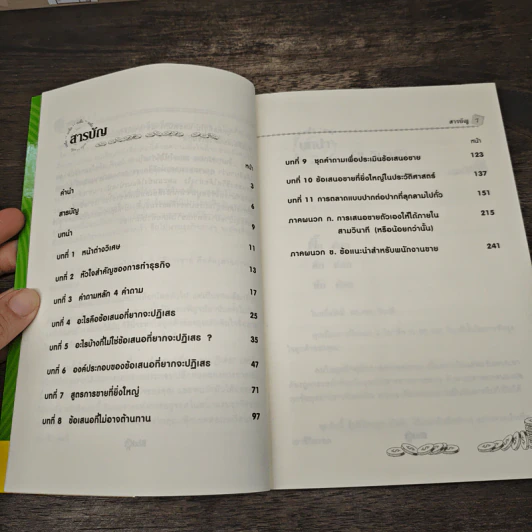 สารบัญ
หน้า
คำนำ 3
สารบัญ 6
บทนำ 9
บทที่ 1 หน้าต่างวิเศษ 11
บทที่ 2 หัวใจสำคัญของการทำธุรกิจ 13
บทที่ 3 คำถามหลัก 4 คำถาม 17
บทที่ 4 อะไรคือข้อเสนอที่ยากจะปฏิเสธ 25
บทที่ 5 อะไรบ้างที่ไม่ใช่ข้อเสนอที่ยากจะปฏิเสธ ? 35
บทที่ 6 องค์ประกอบของข้อเสนอที่ยากจะปฏิเสธ 47
บทที่ 7 สูตรการขายที่ยิ่งใหญ่ 71
บทที่ 8 ข้อเสนอที่ไม่อาจต้านทาน 97
สารบัญ 7
หน้า
บทที่ 9 ชุดคำถามเพื่อประเมินข้อเสนอขาย 123
บทที่ 10 ข้อเสนอขายที่ยิ่งใหญ่ในประวัติศาสตร์ 137
บทที่ 11 การตลาดแบบปากต่อปากที่ลุกลามไปทั่ว 151
ภาคผนวก ก. การเสนอขายตัวเองให้ได้ภายใน 215
สามวินาที (หรือน้อยกว่านั้น)
ภาคผนวก ข. ข้อแนะนำสำหรับพนักงานขาย 241